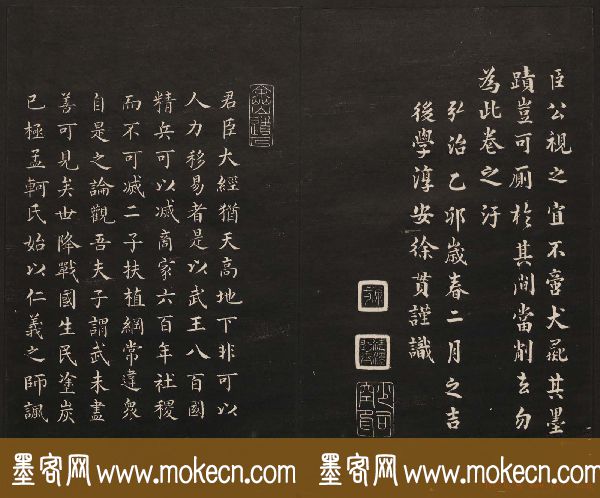 臣公視之宜不啻犬彘其墨
蹟豈可厠於其間當削去勿
為此卷之汙
弘治乙卯歲春二月之吉
後學淳安徐貫謹識
君臣大經猶天高地下非可以
人力移易者是以武王八百國
精兵可以滅商家六百年社稷
而不可滅二子扶植綱常違衆
自是之論觀吾夫子謂武未盡
善可見矣世降戰國生民塗炭
已極孟軻氏始以仁義之師諷
墨客网 www.mokecn.com
墨客网 www.mokecn.com